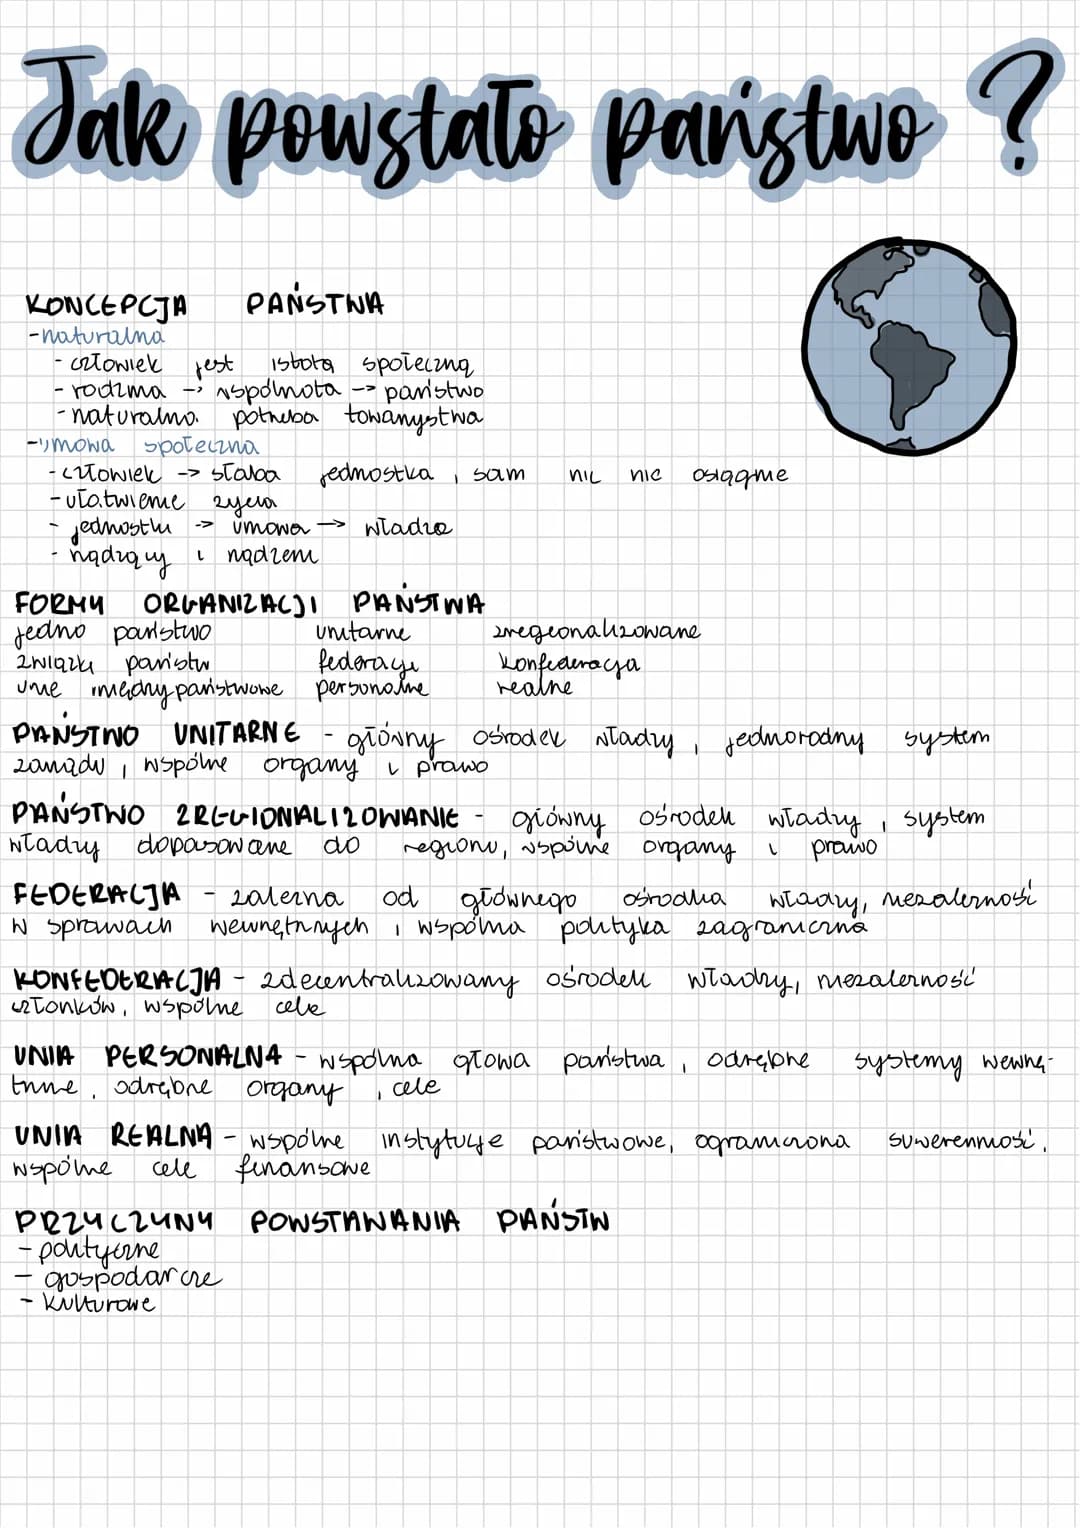 Jak powstało państwo ?
KONCEPCJA PAŃSTWA
-naturalna
- człowiek jest istotą społeczną
- rodzina -> wspólnota -> państwo
- naturalna potrzeba towarzystwa
- umowa społeczna
- człowiek -> słaba jednostka, sam nic nie osiągnie
- ułatwienie życia
- jednostki -> umowa -> władza
- rządzący i rządzeni
FORMY ORGANIZACJI PAŃSTWA
jedno państwo unitarne zregionalizowane
związki państw federacje konfederacja
unie międzypaństwowe personalne realne
PAŃSTWO UNITARNE - główny ośrodek władzy, jednorodny system
zarządu, wspólne organy i prawo
PAŃSTWO ZREGIONALIZOWANE - główny ośrodek władzy, system
władzy dopasowane do regionu, wspólne organy i prawo
FEDERACJA - zależna od głównego ośrodka władzy, niezależność
w sprawach wewnętrznych i wspólna polityka zagraniczna
KONFEDERACJA - zdecentralizowany ośrodek władzy, niezależność
członków, wspólne cele
UNIA PERSONALNA - wspólna głowa państwa, odrębne systemy wewnę-
trzne, odrębne organy, cele
UNIA REALNA - wspólne instytucje państwowe, ograniczona suwerenność,
wspólne cele finansowe
PRZYCZYNY POWSTAWANIA PAŃSTW
- polityczne
- gospodarcze
- kulturowe